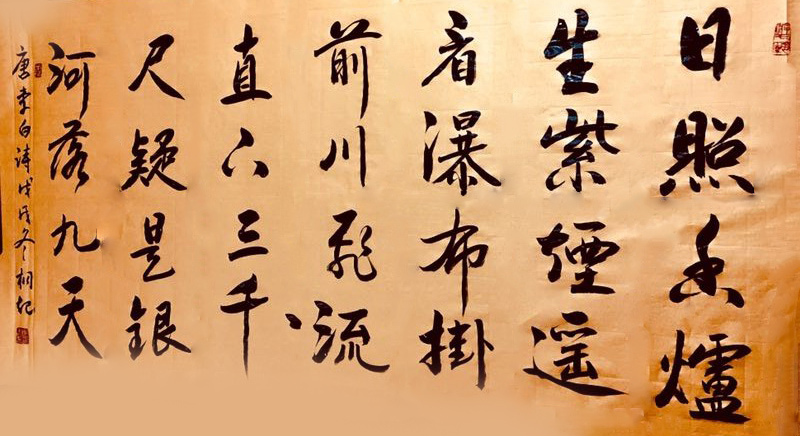 日照香爐
生紫煙遥
看瀑布掛
前川飛流
直下三千
尺疑是銀
河落九天
唐李白诗戊戌冬桐